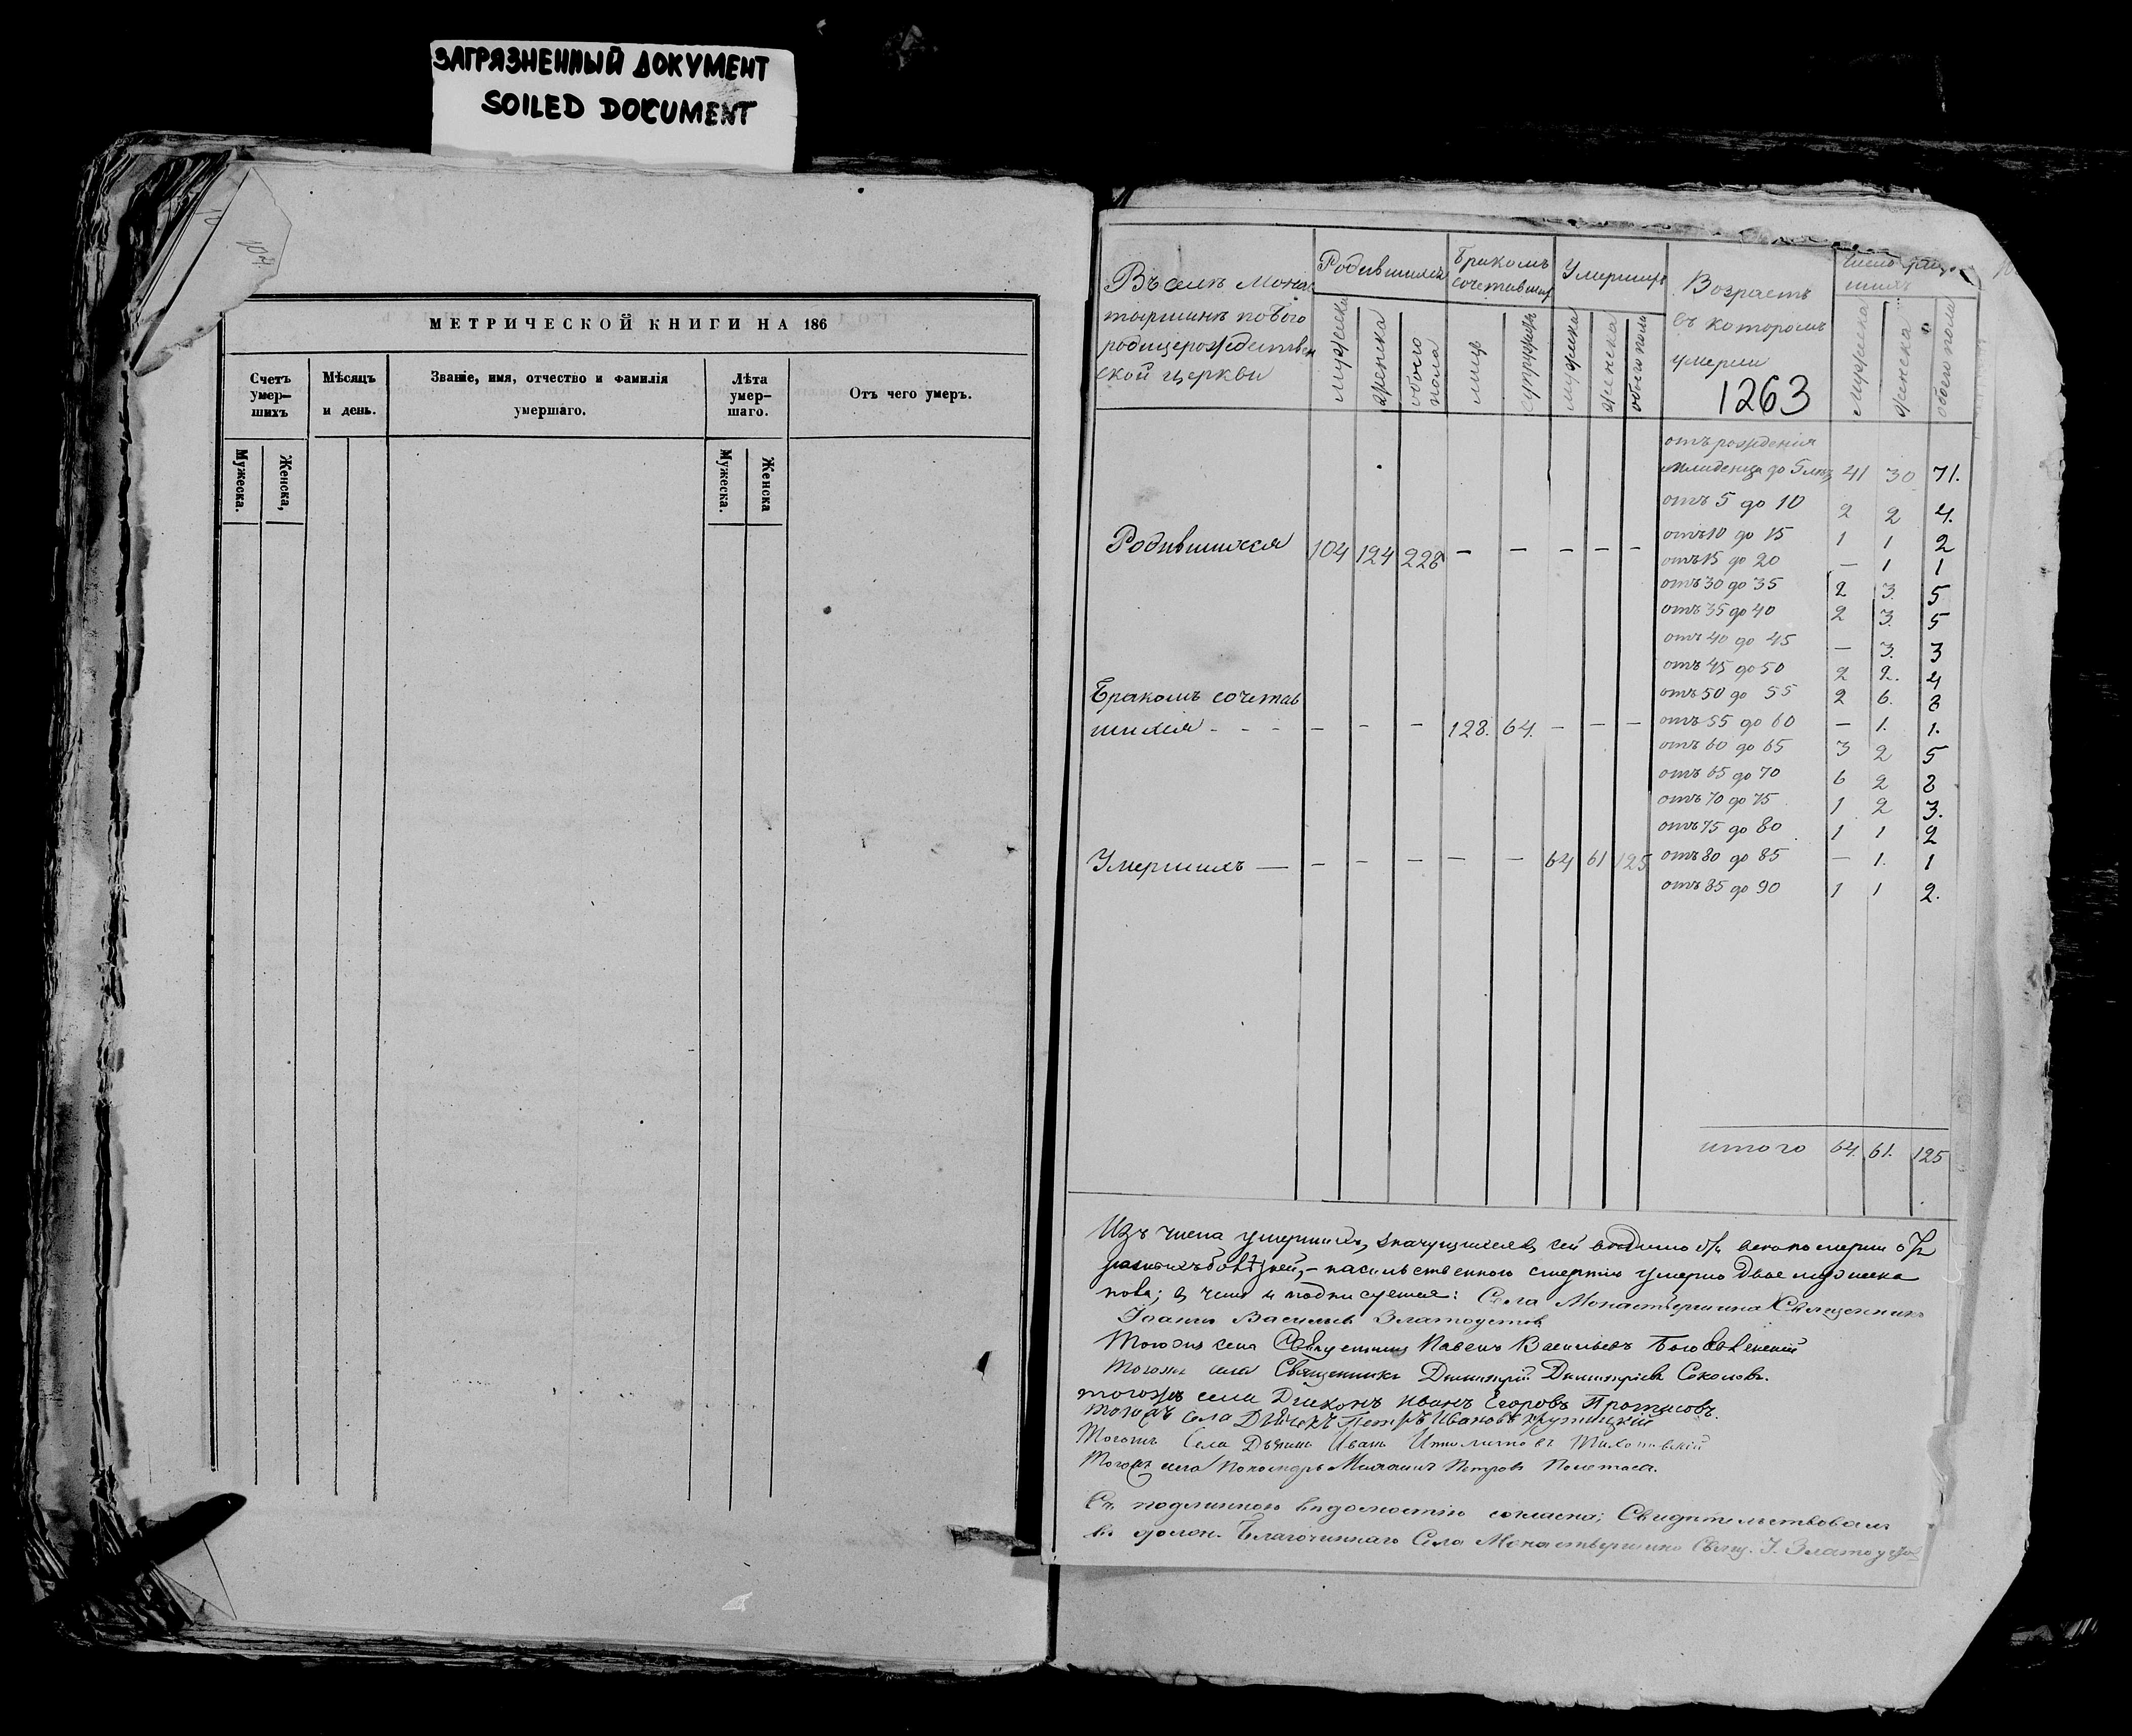 ЗАГРЯЗНЕННЫЙ ДОКУМЕНТ
SOILED DOCUMENT
МЕТРИЧЕСКОЙ КНИГИ НА 186
Счетъ умер-шихъ
Мѣсяцъ и день.
Званіе, имя, отчество и фамилія умершаго.
Лѣта умер-шаго.
Отъ чего умеръ.
Мужеска.
Женска,
Мужеска.
Женска
Въ селѣ Монас
тырщинѣ по Бого
родицерождествен
ской церкви
Родившихся
Бракомъ сочетавших
Умершихъ
Возрастъ
въ которомъ
умерли
1263
Число
мужеска
женска
обоего пола
лицъ
супружествъ
мужеска
женска
обоего пола
мужеска
женска
обоего пола
отъ рожденія
младенца до 5 лѣтъ 41 30 71.
отъ 5 до 10 2 2 4.
отъ 10 до 15 1 1 2
отъ 15 до 20 — 1 1
отъ 30 до 35 2 3. 5
отъ 35 до 40 2 3. 5
отъ 40 до 45 — 3. 3
отъ 45 до 50 2 2. 4
отъ 50 до 55 2 6. 8
отъ 55 до 60 — 1. 1.
отъ 60 до 65 3 2 5
отъ 65 до 70 6 2 8
отъ 70 до 75 1 2 3.
отъ 75 до 80 1 1 2
отъ 80 до 85 — 1. 1
отъ 85 до 90 1 1 2.
Родившихся 104 124 228 — — — — —
Бракомъ сочетав
шихся - - - — — — 128. 64. — — —
Умершихъ — — — — — — 64 61 125
итого 64. 61. 125
Изъ числа умершихъ, значущихся въ сей
насильственною смертію умерло двое мужеска
пола; въ чемъ и подписуемся: Села Монастырщина Священникъ
Іоаннъ Васильевъ Златоустовъ
Тогожъ села Священникъ Павелъ Васильевъ
Тогожъ села Священникъ Димитрій Димитріевъ Соколовъ.
тогожъ села Діаконъ Иванъ Егоровъ Протасовъ.
тогожъ Села Дьячекъ Петръ Ивановъ Крутицкій
Тогожъ Села Иванъ
Тогожъ села Пономарь Михаилъ Петровъ Полетаевъ.
Съ подлинною вѣдомостію согласно; Свидѣтельствовалъ
въ должн. Благочиннаго Села Монастырщино Свящ. І. Златоустов